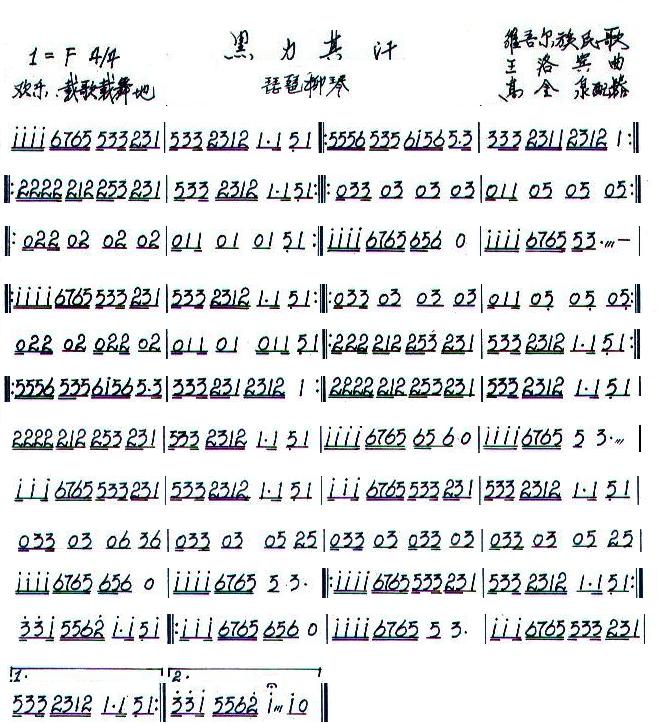 黑力其汗
1=F 4/4
维吾尔族民歌
欢乐、载歌载舞地
琵琶柳琴
王洛宾曲
高全泉配器
i i i i 6765 533 231 | 533 2312 1·1 51 ‖: 5556 535 6156 5·3 | 333 2311 2312 1 :‖
‖: 2222 212 253 231 | 533 2312 1·1 51 :‖: 033 03 03 03 | 011 05 05 05 :‖
‖: 022 02 02 02 | 011 01 01 51 :‖ i i i i 6765 656 0 | i i i i 6765 53·〃— |
‖: i i i i 6765 533 231 | 533 2312 1·1 51 :‖: 033 03 03 03 | 011 05 05 05 :‖
022 02 022 02 | 011 01 011 51 ‖: 222 212 253 231 | 533 2312 1·1 51 :‖
‖: 5556 535 6156 5·3 | 333 231 2312 1 :‖ 2222 212 253 231 | 533 2312 1·1 51 |
2222 212 253 231 | 533 2312 1·1 51 | i i i i 6765 65 6 0 | i i i i 6765 5 3·〃 |
i i i 6765 533 231 | 533 2312 1·1 51 | i i i 6765 533 231 | 533 2312 1·1 51 |
033 03 06 36 | 033 03 05 25 | 033 03 033 03 | 033 03 05 25 |
i i i i 6765 656 0 | i i i i 6765 5 3· ‖: i i i i 6765 533 231 | 533 2312 1·1 51 :‖
3 3 i 5562 i·i 5 i ‖: i i i 6765 656 0 | i i i i 6765 5 3· | i i i 6765 533 231 |
1. 2.
533 2312 1·1 51 :‖ 3 3 i 5562 i〃 i 0 ‖